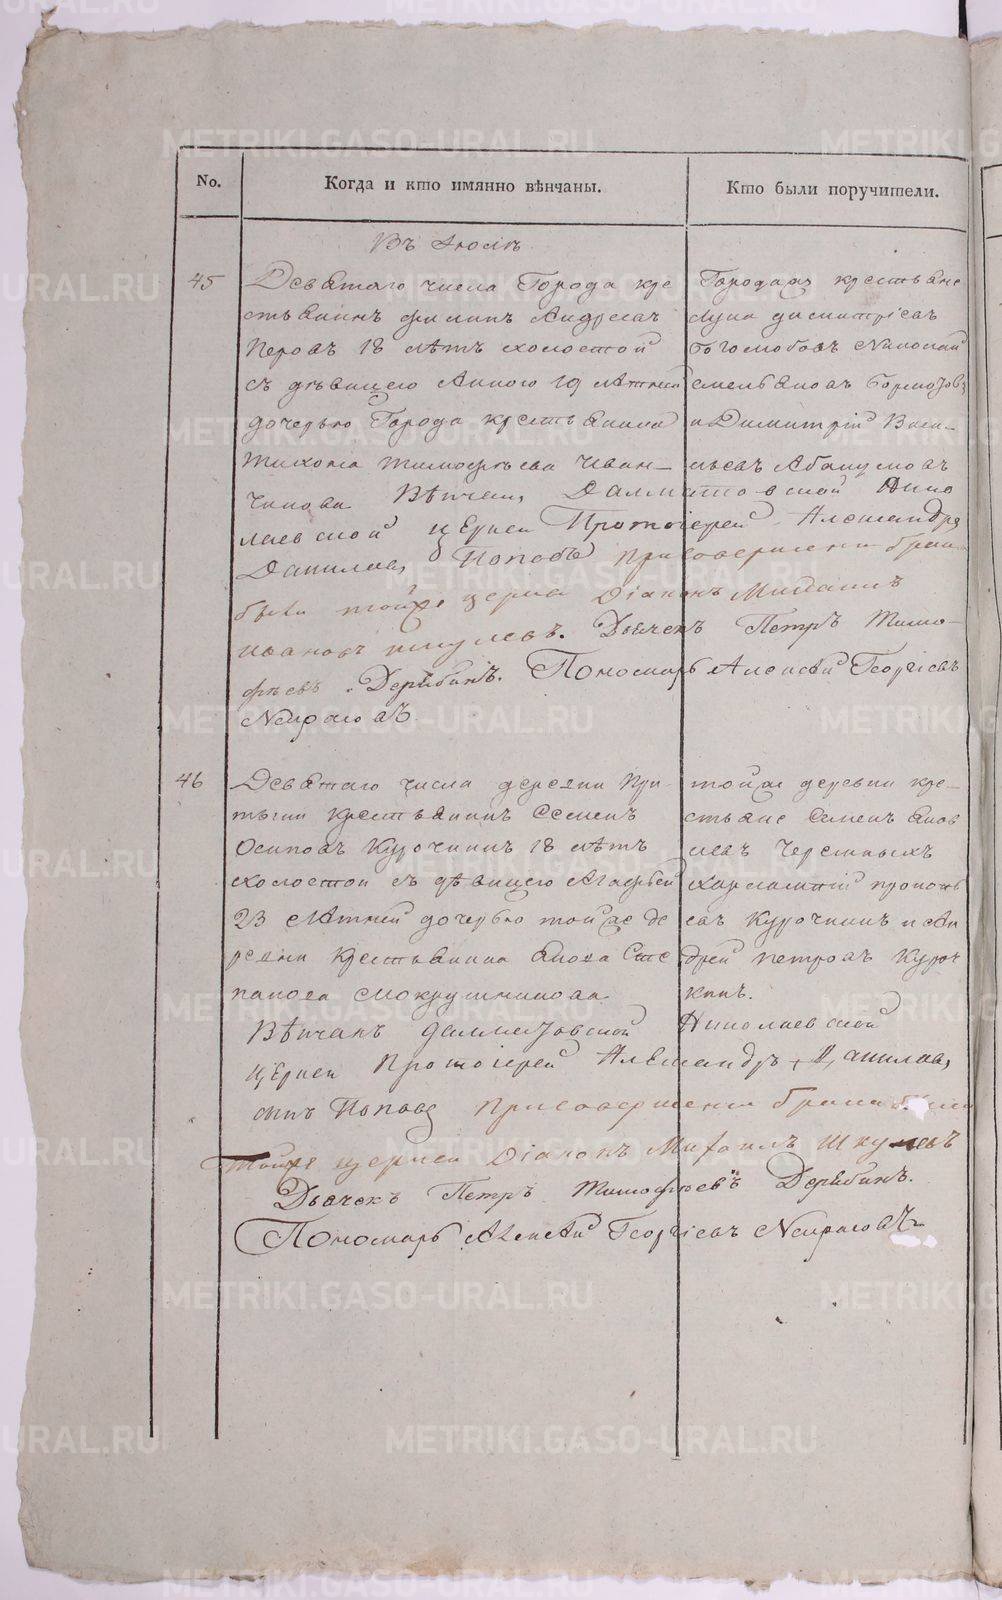 No.
Когда и кто имянно вѣнчаны.
Кто были поручители.
Въ Июлѣ
45
Девятаго числа Города кре
стьянинъ Филипъ Андреевъ
Перовъ 18 лѣтъ холостой
съ дѣвицею Анною 19 лѣтней
дочерью Города крестьянина
Тихона Тимофѣева Иван-
чикова Вѣнчалъ Далматовской Нико
лаевской церкви Протоіерей Александръ
Даниловъ Поповъ При совершеніи брака
были тойже церкви Діаконъ Михаилъ
Ивановъ Шкулевъ. Дьячекъ Петръ Тимо-
фѣевъ Дерябинъ. Пономарь Алексѣй Георгіевъ
Города крестьяне
Лука Димитріевъ
Боголюбовъ Николай
Емельяновъ
и Димитрій Васи-
льевъ Абакумовъ
46
Девятаго числа деревни При-
тыки крестьянинъ Семенъ
Осиповъ Курочкинъ 18 лѣтъ
холостой съ дѣвицею Агафьей
23 лѣтней дочерью тойже де
ревни крестьянина Якова Сте
панова Мокрушникова
Вѣнчалъ Далматовской Николаевской
церкви Протоіерей Александръ Даниловъ
сынъ Поповъ При совершеніи брака были
тойже церкви Діаконъ Михаилъ Шкулевъ
Дьячекъ Петръ Тимофѣевъ Дерябинъ.
Пономарь Алексѣй Георгіевъ
тойже деревни кре-
стьяне Семенъ Яков
левъ Черемныхъ
Харлампій Прокопь
евъ Курочкинъ и Ан
дрей Петровъ Куроч
кинъ.
METRIKI.GASO-URAL.RU